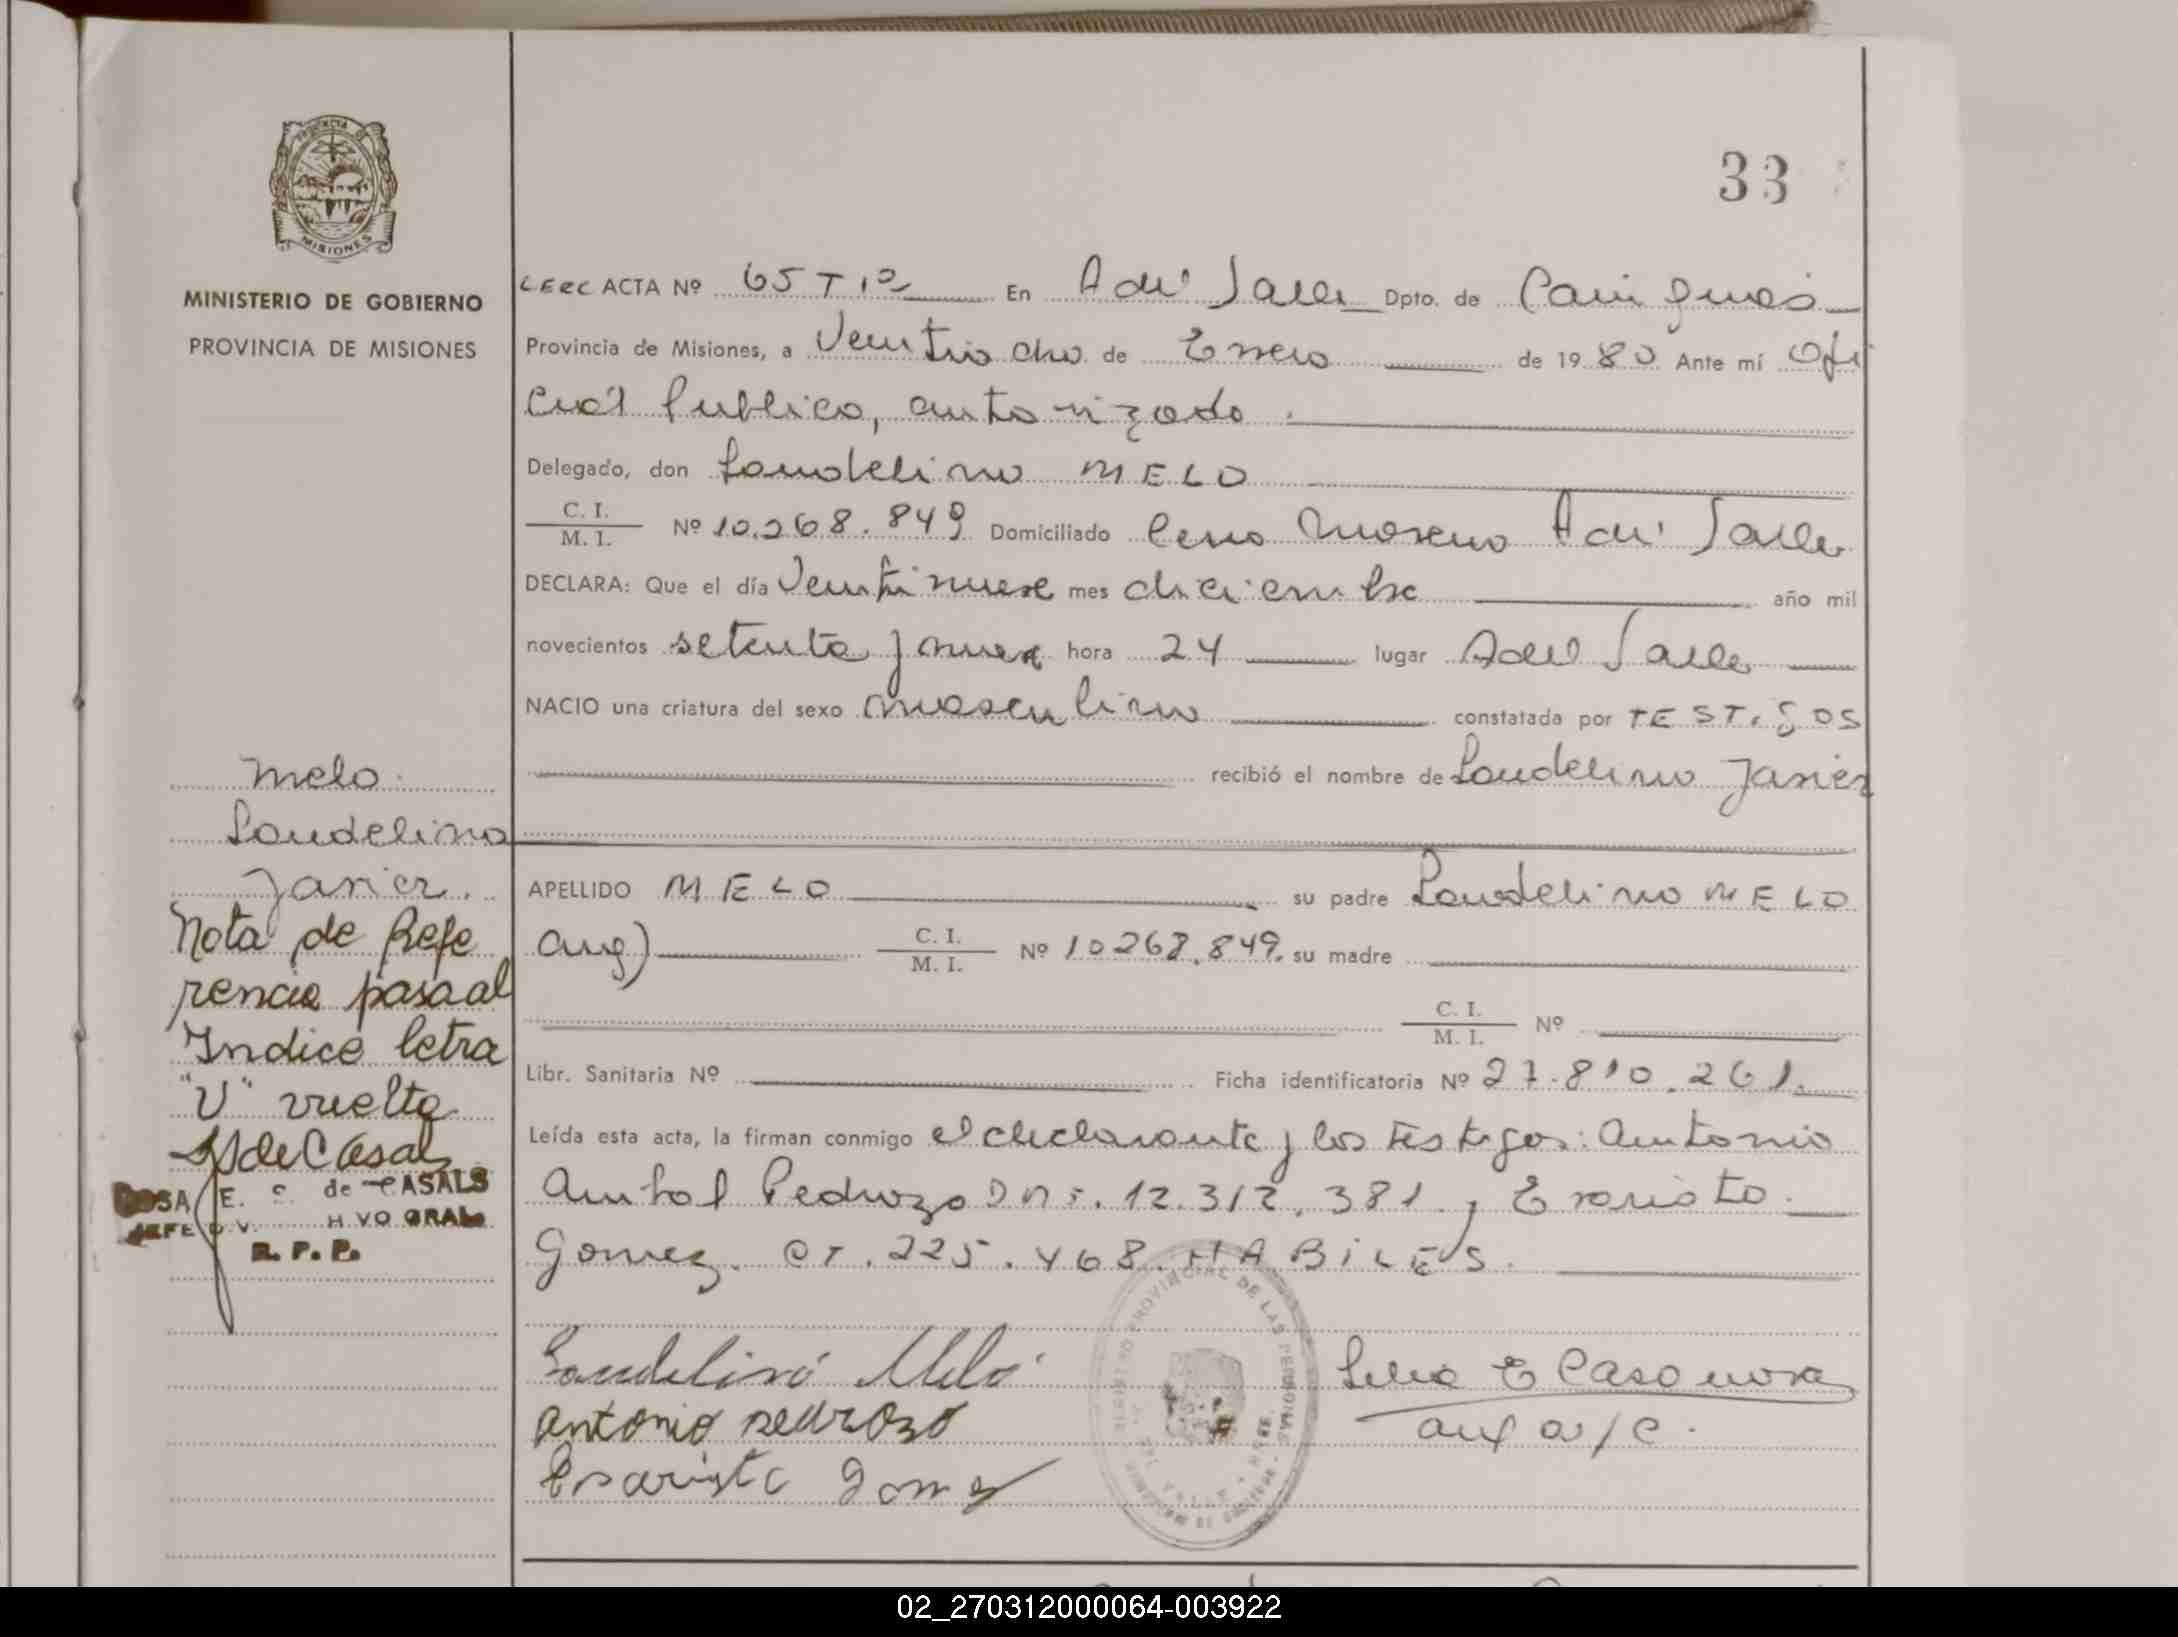 33
MINISTERIO DE GOBIERNO
PROVINCIA DE MISIONES
ACTA Nº 65 T 1º En A del Valle Dpto. de Cainguas
Provincia de Misiones, a Veintiocho de Enero de 1980 Ante mí Ofi
cial Publico, autorizado.
Delegado, don Laudelino MELO
C. I. / M. I. Nº 10.268.849 Domiciliado Cerro Moreno A del Valle
DECLARA: Que el día Veintinueve mes diciembre año mil
novecientos setenta y nueve hora 24 lugar A del Valle
NACIO una criatura del sexo masculino constatada por TESTigOS
recibió el nombre de Laudelino Javier
Melo
Laudelino
Javier.
APELLIDO MELO su padre Laudelino MELO
Arg) C. I. / M. I. Nº 10268.849. su madre
C. I. / M. I. Nº
Libr. Sanitaria Nº Ficha identificatoria Nº 27.810.261.
Leída esta acta, la firman conmigo el declarante y los testigos: Antonio
Anibal Pedrozo DNi. 12.312.381. y Evaristo
Gomez. CI. 225.468. HABILES.
Nota de Refe
rencia pasa al
Indice letra
"V" vuelta
de Casals
ROSA E. C. de CASALS
JEFE
R. P. P.
Laudelino Melo
Antonio Pedrozo
Evaristo Gomez
E Casanova
aux a/c.
REGISTRO PROVINCIAL DE LAS PERSONAS
DEL VALLE
02_270312000064-003922